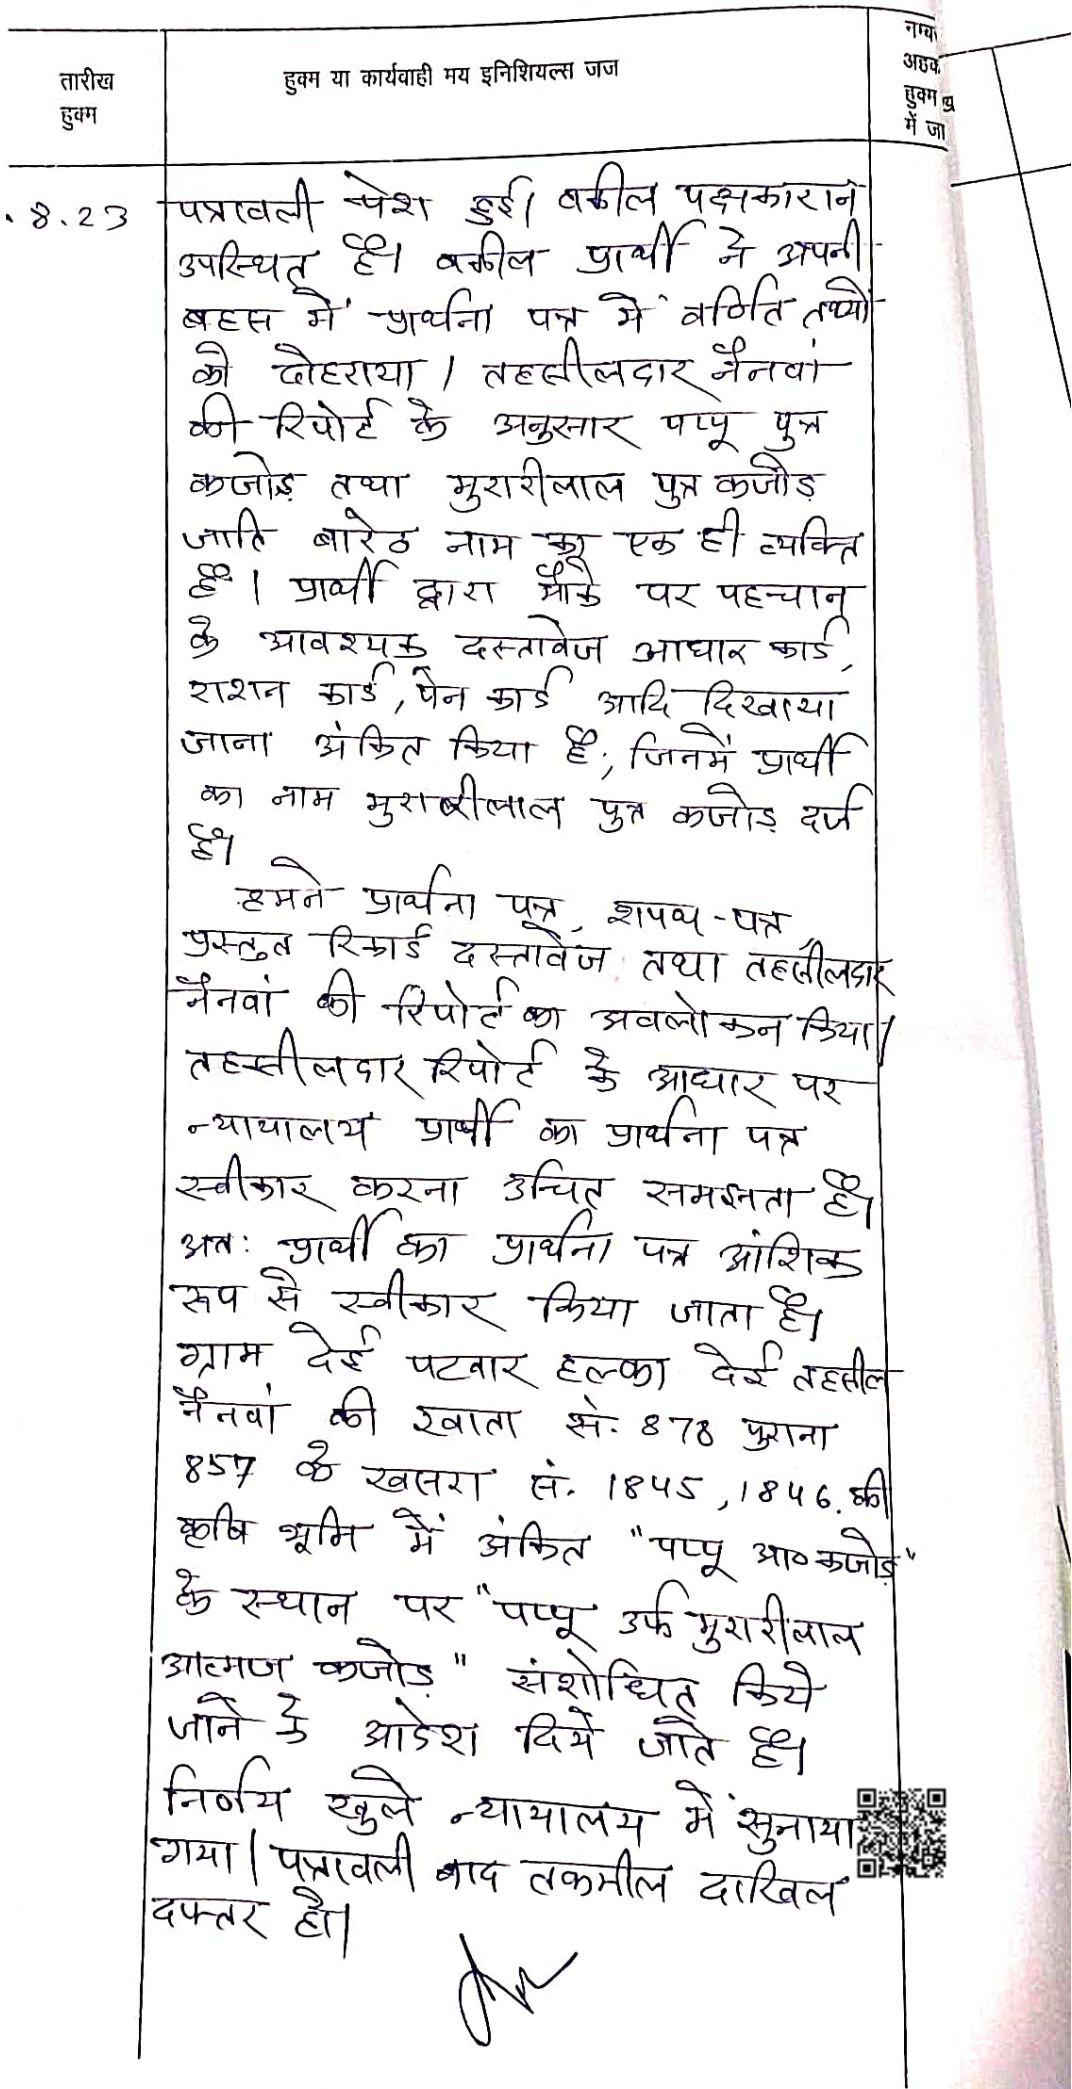 तारीख
हुक्म
हुक्म या कार्यवाही मय इनिशियल्स जज
हुक्म
में जा
.8.23
पत्रावली पेश हुई। वकील पक्षकारान
उपस्थित है। वकील प्रार्थी ने अपनी
बहस में प्रार्थना पत्र में वर्णित तथ्यों
को दोहराया। तहसीलदार नैनवां
की रिपोर्ट के अनुसार पप्पू पुत्र
कजोड़ तथा मुरारीलाल पुत्र कजोड़
जाति बारेठ नाम का एक ही व्यक्ति
है। प्रार्थी द्वारा मौके पर पहचान
के आवश्यक दस्तावेज आधार कार्ड,
राशन कार्ड, पेन कार्ड आदि दिखाया
जाना अंकित किया है, जिनमें प्रार्थी
का नाम मुरारीलाल पुत्र कजोड़ दर्ज
है।
हमने प्रार्थना पत्र, शपथ-पत्र,
प्रस्तुत रिकार्ड दस्तावेज तथा तहसीलदार
नैनवां की रिपोर्ट का अवलोकन किया।
तहसीलदार रिपोर्ट के आधार पर
न्यायालय प्रार्थी का प्रार्थना पत्र
स्वीकार करना उचित समझता है।
अतः प्रार्थी का प्रार्थना पत्र आंशिक
रूप से स्वीकार किया जाता है।
ग्राम देई पटवार हल्का देई तहसील
नैनवां की खाता सं. 878 पुराना
857 के खसरा सं. 1845, 1846 की
कृषि भूमि में अंकित "पप्पू आ० कजोड़"
के स्थान पर "पप्पू उर्फ मुरारीलाल
आत्मज कजोड़" संशोधित किये
जाने के आदेश दिये जाते है।
निर्णय खुले न्यायालय में सुनाया
गया। पत्रावली बाद तकमील दाखिल
दफ्तर हो।